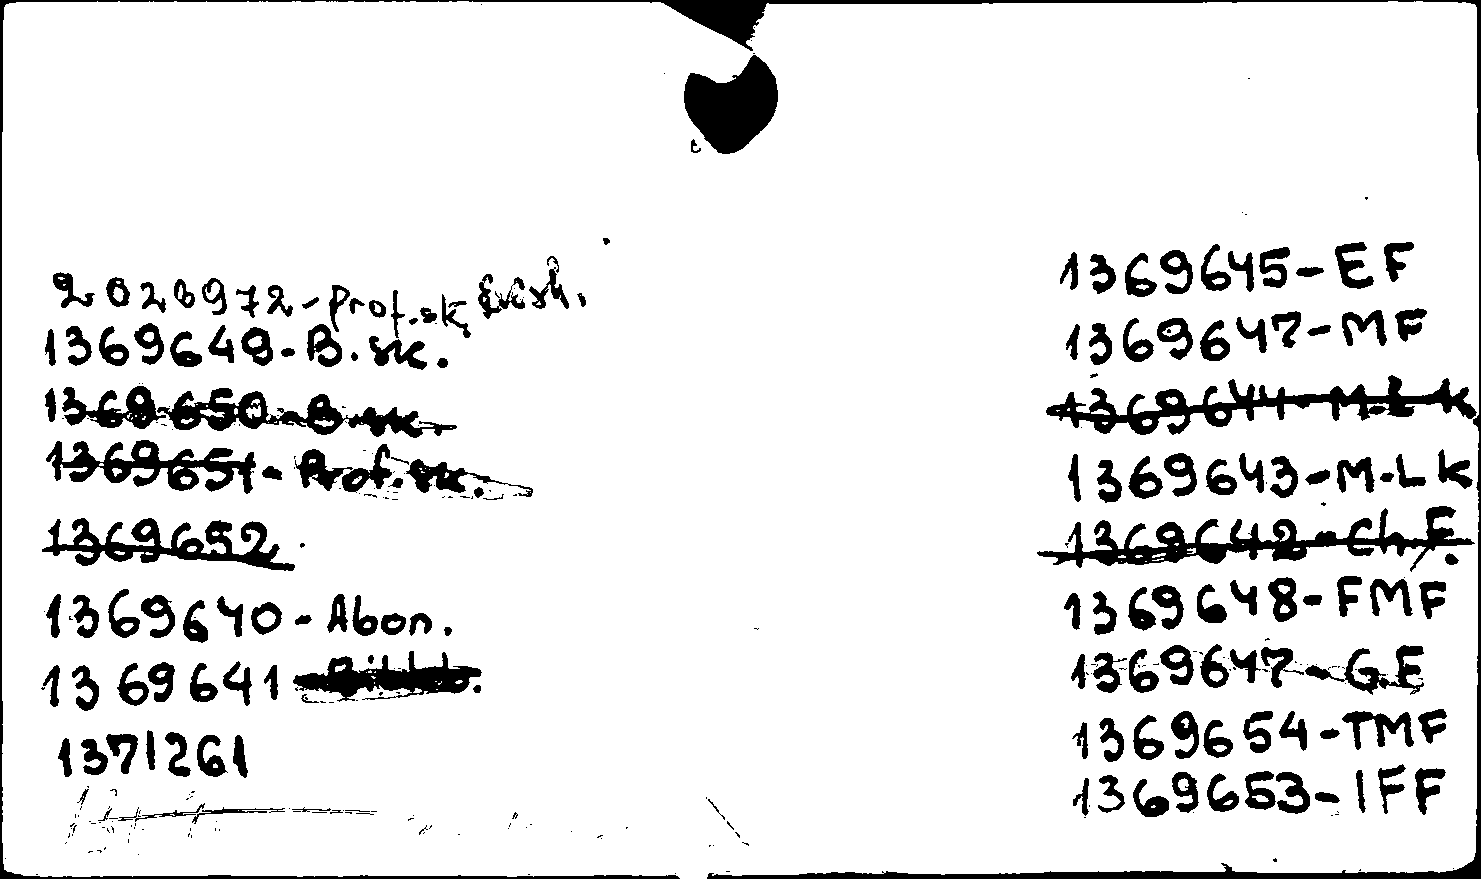 2023972-Prof.sk,
1369649-B.sk.
1369650-B.sk.
1369651-Prof.sk.
1369652
1369640-Abon.
1369641-Bibl.
1371261
1369645-EF
1369647-MF
1369644-M.L k
1369643-M.L k
1369642-Ch.F.
1369648-FMF
1369647-G.E
1369654-TMF
1369653-IFF